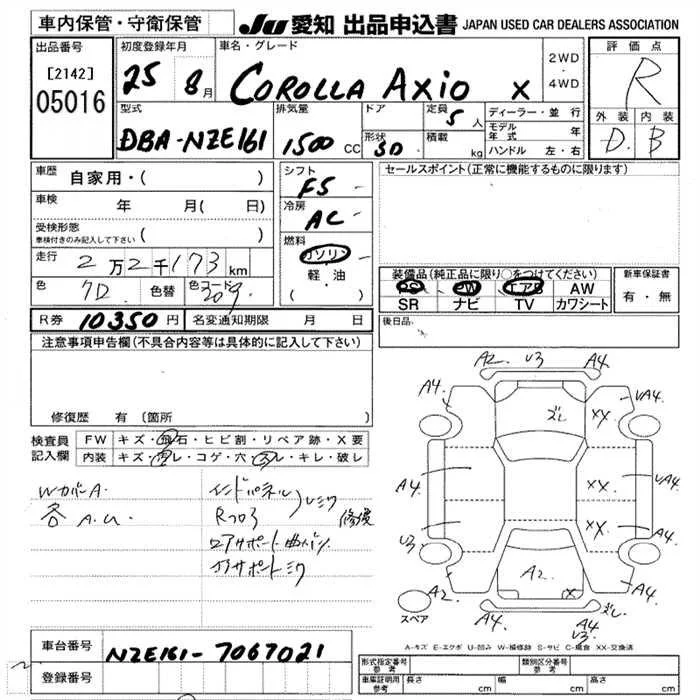 車内保管・守衛保管
JU 愛知 出品申込書 JAPAN USED CAR DEALERS ASSOCIATION
出品番号
[2142]
05016
初度登録年月
25 8月
車名・グレード
COROLLA AXIO X
2WD
・
4WD
評価点
R
外装 内装
D B
型式
DBA-NZE161
排気量
1500 CC
ドア
形状
SD
定員
5人
積載
kg
ディーラー・並行
モデル年式 年
ハンドル 左・右
車歴 自家用・( )
車検 年 月( 日)
受検形態
車検付きのみ記入して下さい ( )
走行 2万2千173km
色 グD 色替 色コード 209
シフト
F5
冷房
AC
燃料
ガソリン
軽・油
( ・ )
セールスポイント(正常に機能するものに限ります)
装備品(純正品に限り○をつけてください)
PS PW エアB AW
SR ナビ TV カワシート
新車保証書
有・無
R券 10350円 名変通知期限 月 日
後日品
注意事項申告欄(不具合内容等は具体的に記入して下さい)
修復歴 有(箇所
検査員
記入欄
FW キズ・飛石・ヒビ割・リペア跡・X要
内装 キズ・汚レ・コゲ・穴・スレ・キレ・破レ
WカバーA
各 A.U
インドパネル
Rフロア
修復
ロアサポート曲
A2 U3 A4
A4 UA4
ズレ XX
A4 XX UA4 A4
U3 XX
A2 A2 X A4
ズレ
A4
U3
スペア
A-キズ E-エクボ U-凹み W-補修跡 S-サビ C-腐食 XX-交換済
車台番号 NZE161-7067021
登録番号
形式指定番号
参考
類別区分番号
参考
車庫証明用
参考
長さ cm 幅 cm 高さ cm